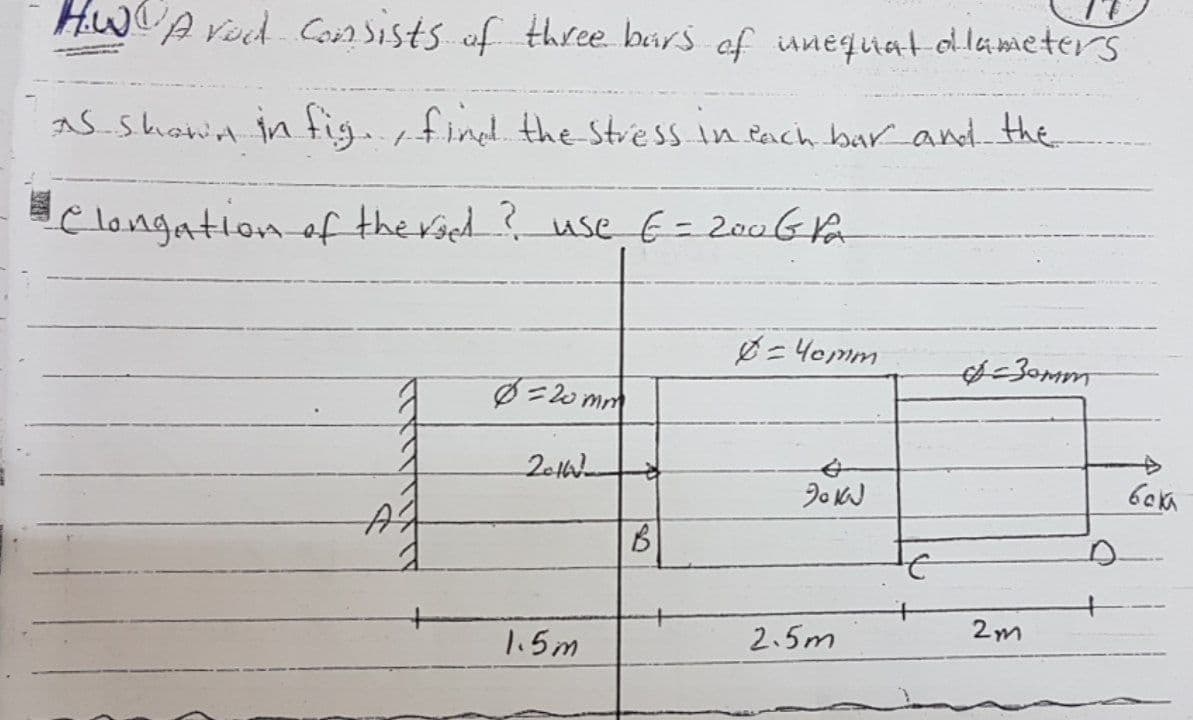 H.W① A rod consists of three bars of unequal diameters
as shown in fig., find the stress in each bar and the
elongation of the rod? use E = 200 GPa
Ø = 40mm
Ø = 30mm
Ø = 20 mm
20 KN
90 KN
60 KN
A
B
C
D
1.5m
2.5m
2m